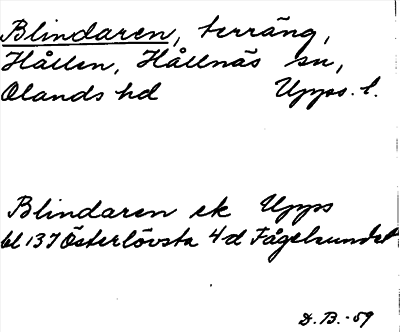 Blindaren, terräng,
Hållen, Hållnäs sn,
Olands hd Upps. l.
Blindaren ek Upps
bl 137 Österlövsta 4d Fågelsundet
D.B. -59